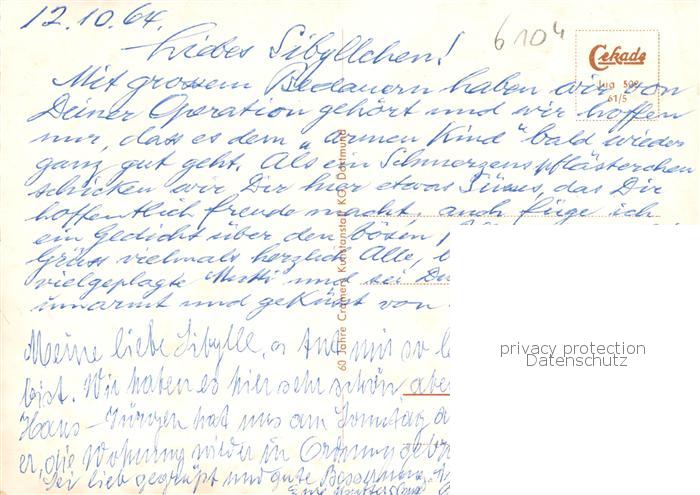 12.10.64.
6104
Cekade
Jug 509
61/5
Liebes Sibyllchen!
Mit grossem Bedauern haben wir von
Deiner Operation gehört und wir hoffen
nur, dass es dem „armen Kind" bald wieder
ganz gut geht. Als ein Schmerzenspflästerchen
schicken wir Dir hier etwas Süsses, das Dir
hoffentlich Freude macht, auch füge ich
ein Gedicht über den bösen
Grüss vielmals herzlich Alle,
vielgeplagte Mutti und sei Du
umarmt und geküsst von
60 Jahre Cramers Kunstanstalt KG, Dortmund
Meine liebe Sibylle, es tut mir so
bist. Wir haben es hier sehr schön, aber
Hans-Jürgen hat uns am Sonntag
er, die Wohnung wieder in Ordnung
Sei lieb gegrüßt und gute Besserung
privacy protection
Datenschutz